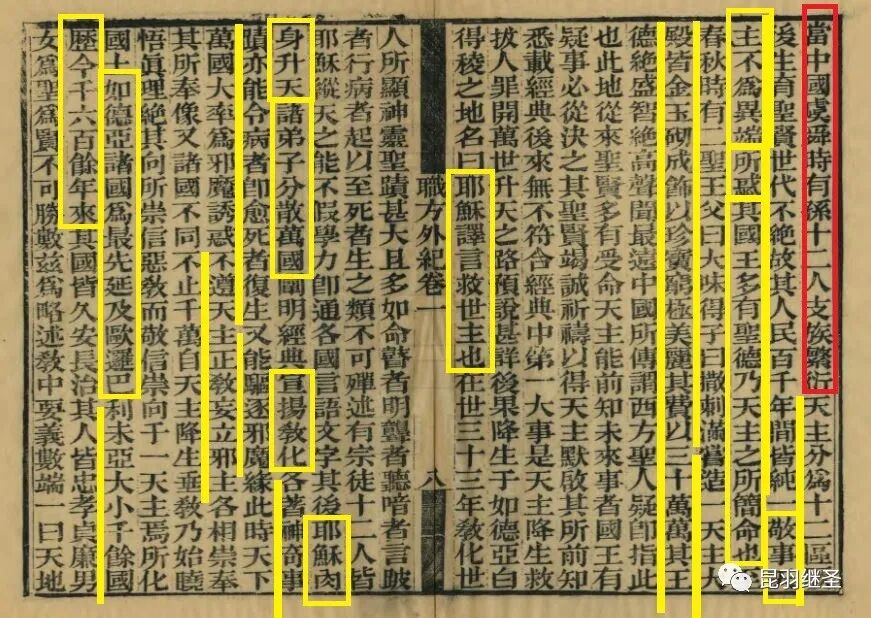 當中國虞舜時有孫十二人支族繁衍天主分為十二區厥
後生育聖賢世代不絕故其人民百千年間皆純一敬事天
主不為異端所惑其國王多有聖德乃天主之所簡命也
春秋時有二聖王父曰大味得子曰撒剌滿嘗造一天主大
殿皆金玉砌成飾以珍寶窮極美麗其費以三十萬萬其王
德絕盛智絕高聲聞最遠中國所傳謂西方聖人疑卽指此
也此地從來聖賢多有受命天主能前知未來事者國王有
疑事必從決之其聖賢竭誠祈禱以得天主默啟其所前知
悉載經典後來無不符合經典中第一大事是天主降生救
拔人罪開萬世升天之路預說甚詳後果降生于如德亞白
得稜之地名曰耶穌譯言救世主也在世三十三年敎化世
職方外紀卷一
八
人所顯神靈聖蹟甚大且多如命瞽者明聾者聽喑者言跛
者行病者起以至死者生之類不可殫述有宗徒十二人皆
耶穌縱天之能不假學力卽通各國言語文字其後耶穌肉
身升天諸弟子分散萬國闡明經典宣揚敎化各著神奇事
蹟亦能令病者卽愈死者復生又能驅逐邪魔緣此時天下
萬國大率為邪魔誘惑不遵天主正敎妄立邪主各相崇奉
其所奉像又諸國不同不止千萬自天主降生垂敎乃始曉
悟眞理絕其向所崇信惡敎而敬信崇向于一天主焉所化
國土如德亞諸國為最先延及歐邏巴利未亞大小千餘國
歷今千六百餘年來其國皆久安長治其人皆忠孝貞廉男
女為聖為賢不可勝數茲為略述敎中要義數端一曰天地
昆羽继圣